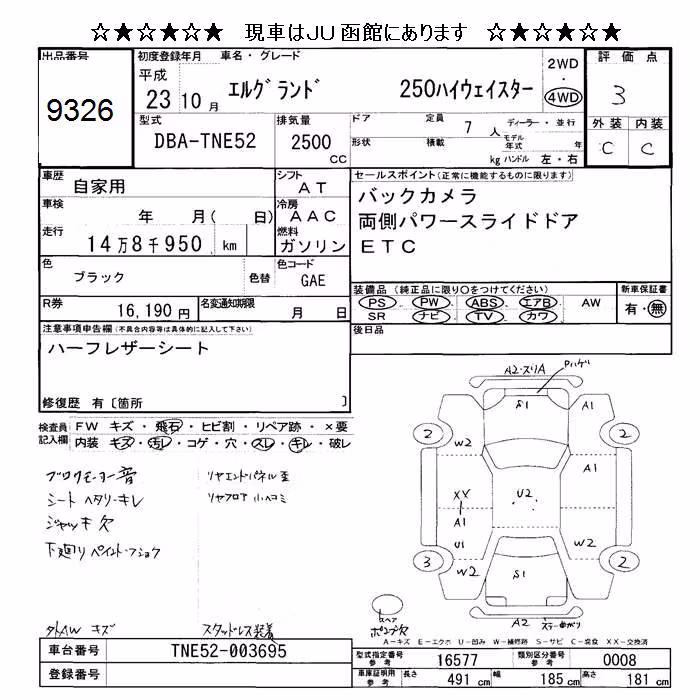 ☆★☆★☆★ 現車はJU函館にあります ☆★☆★☆★
出品番号 初度登録年月 車名・グレード 評価点
9326 平成 23 10 月 エルグランド 250ハイウェイスター 2WD ・ 4WD 3
型式 排気量 ドア 定員 7 人 ディーラー・並行 外装 内装
DBA-TNE52 2500 CC 形状 積載 kg モデル年式 年 ハンドル 左・右 C C
車歴 自家用 シフト AT セールスポイント(正常に機能するものに限ります)
車検 年 月( 日) 冷房 AAC バックカメラ
両側パワースライドドア
走行 14万8千950 km 燃料 ガソリン ETC
色 ブラック 色替 色コード GAE
装備品(純正品に限り○をつけてください) 新車保証書
R券 16,190円 名変通知期限 月 日 PS PW ABS エアB AW 有・無
SR ナビ TV カワ
注意事項申告欄(不具合内容等は具体的に記入して下さい) 後日品
ハーフレザーシート
修復歴 有〔箇所 〕
検査員記入欄 FW キズ・飛石・ヒビ割・リペア跡・×要
内装 キズ・汚レ・コゲ・穴・スレ・キレ・破レ
ブロワモーター音 リヤエンドパネル歪
シート ヘタリ・キレ リヤフロア 小ヘコミ
ジャッキ欠
下廻り ペイント・フショク
外AW キズ スタッドレス装着
A2・スリA Pハゲ
S1 A1
2 W2 2
A1
XX U2
A1
U1 W2
3 W2 S1 2
スペア A2
A-キズ E-エクボ U-凹み W-補修跡 S-サビ C-腐食 XX-交換済
車台番号 TNE52-003695 型式指定番号 参考 16577 類別区分番号 参考 0008
登録番号 車庫証明用 参考 長さ 491 cm 幅 185 cm 高さ 181 cm